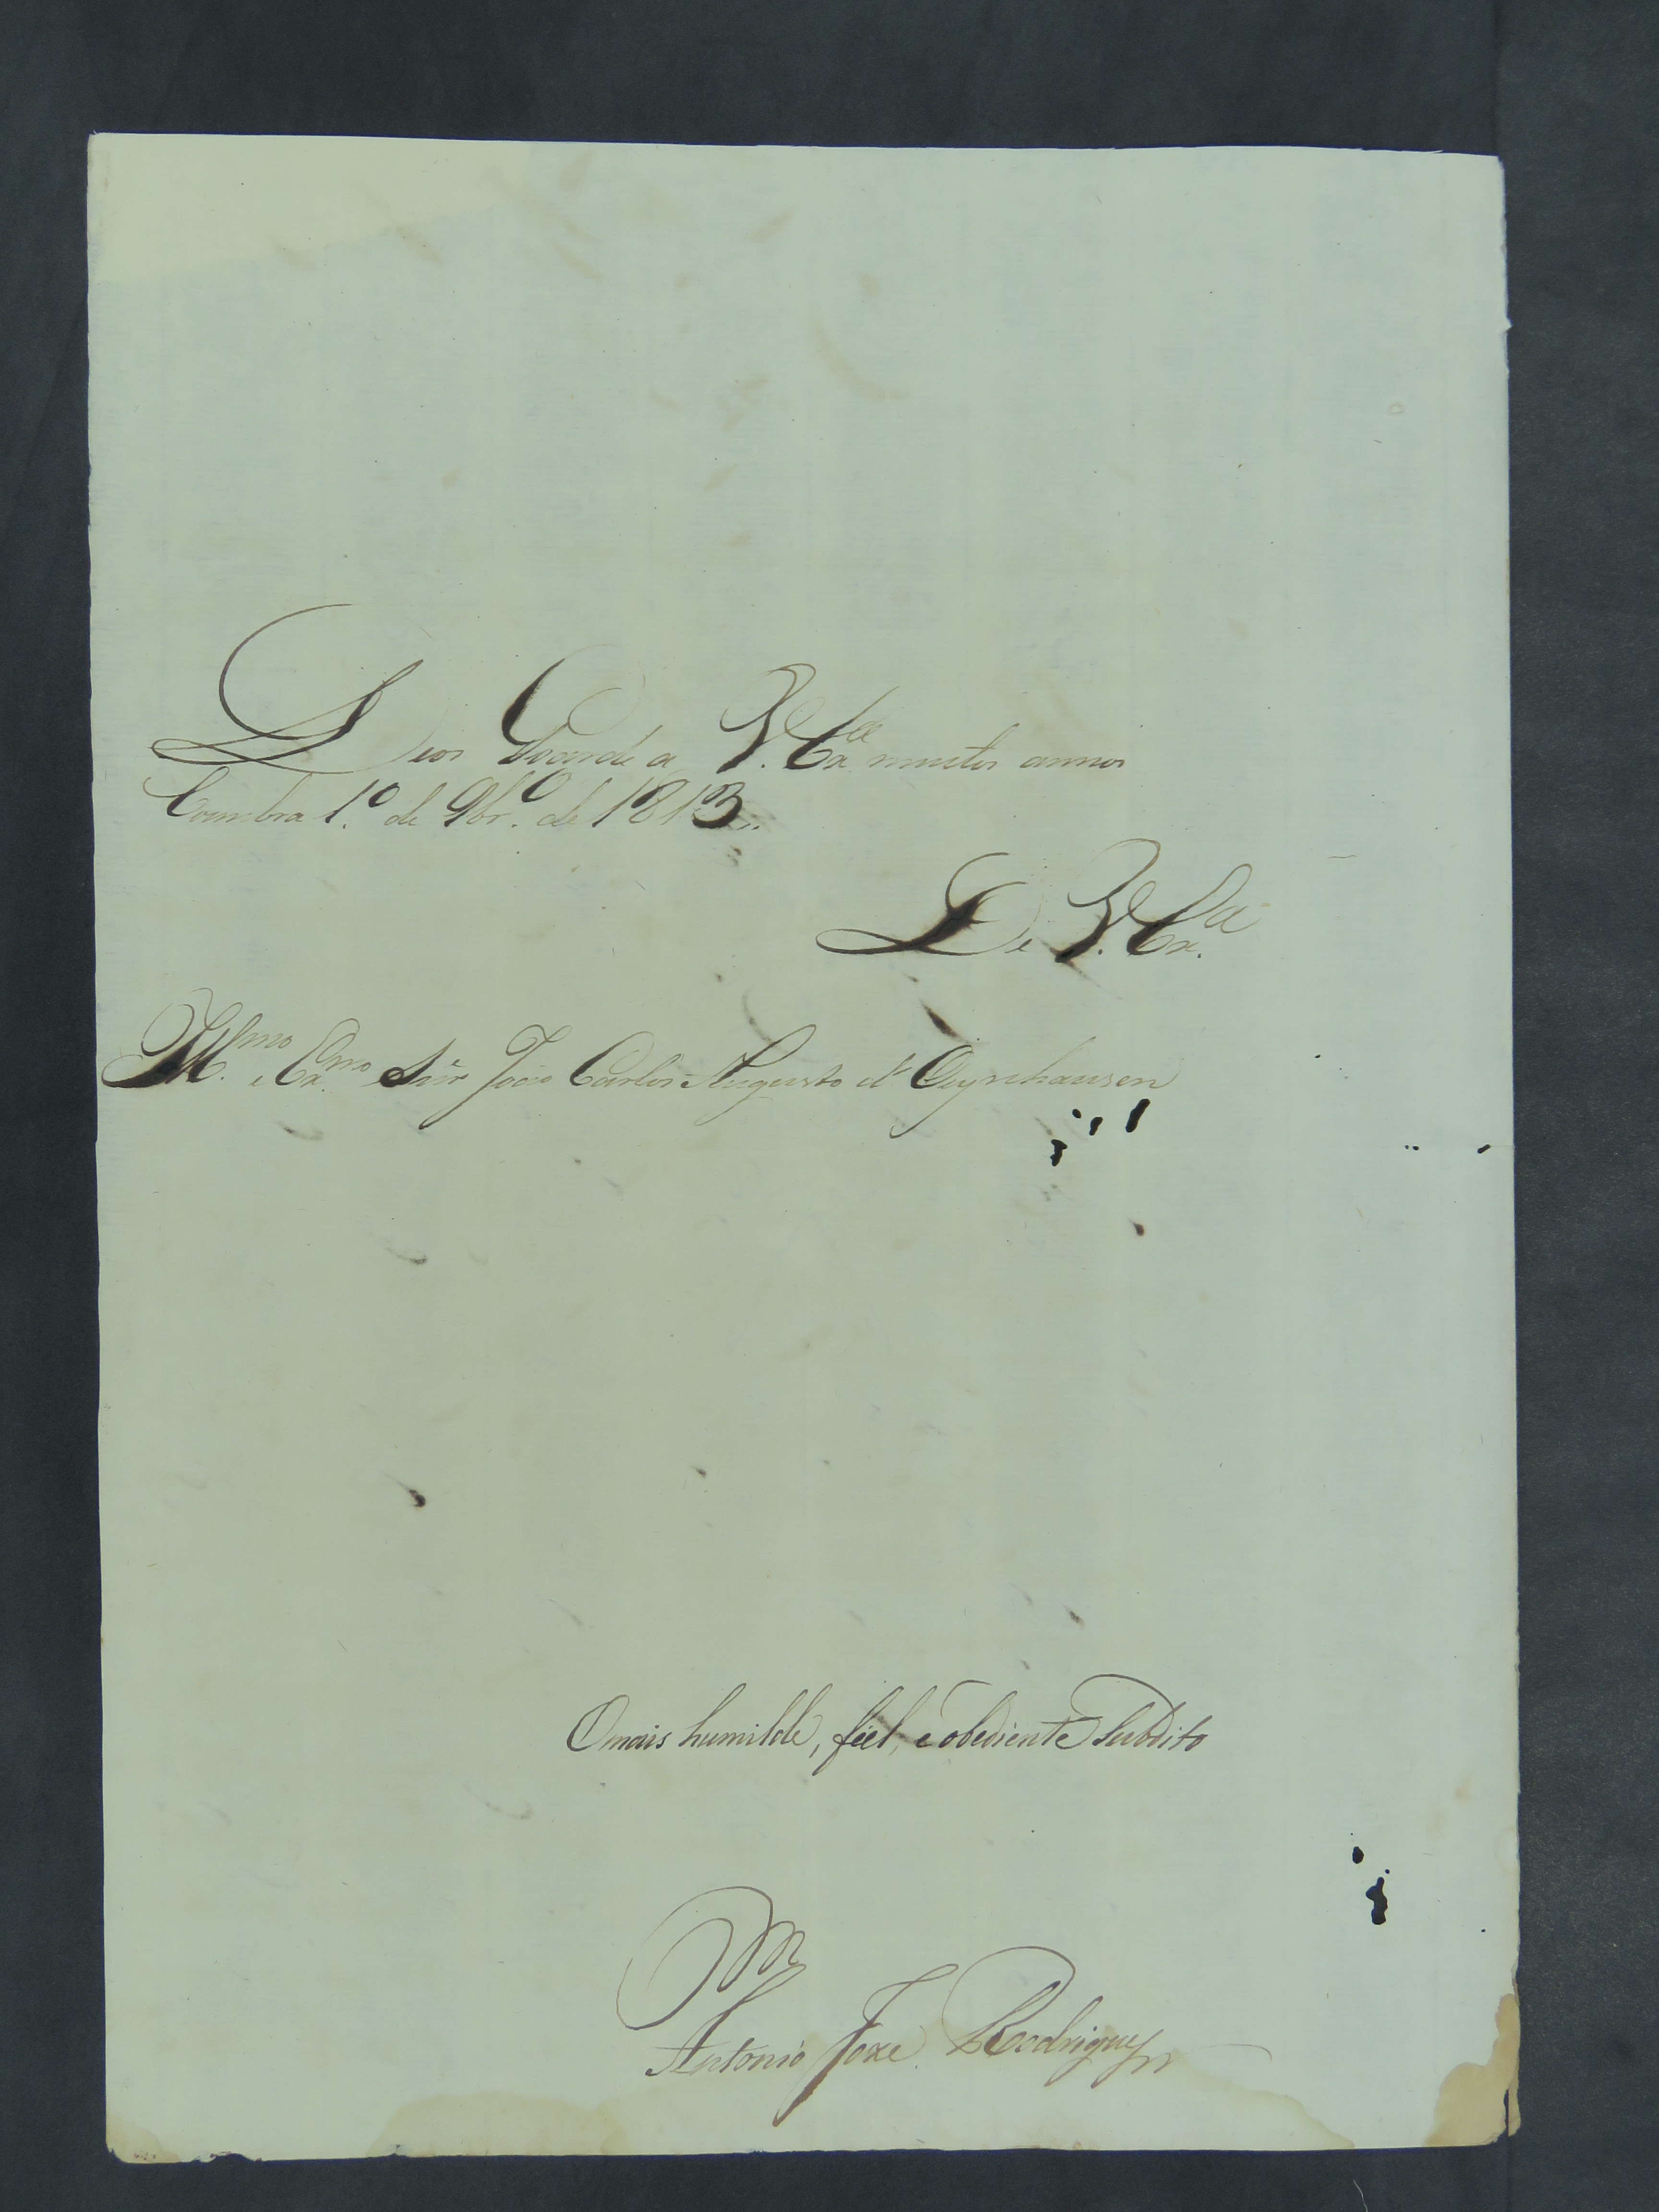 Deos Guarde a V. Exª muitos annos
Coimbra 1º de 9brº de 1813.
De V. Exª
Illmo e Exmo Sñr João Carlos Augusto d'Oeynhausen
O mais humilde, fiel, e obediente Subdito
Antonio Joze Rodrigues